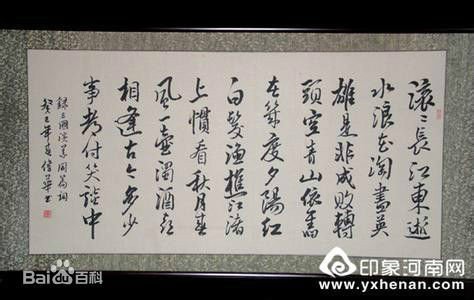 滚〻長江東逝
水浪花淘盡英
雄是非成敗轉
頭空青山依舊
在幾度夕陽紅
白髮漁樵江渚
上慣看秋月春
風一壺濁酒喜
相逢古今多少
事都付笑談中
錄三國演義開篇詞
癸巳年春信華書
Bai du 百科
印象河南网
www.yxhenan.com